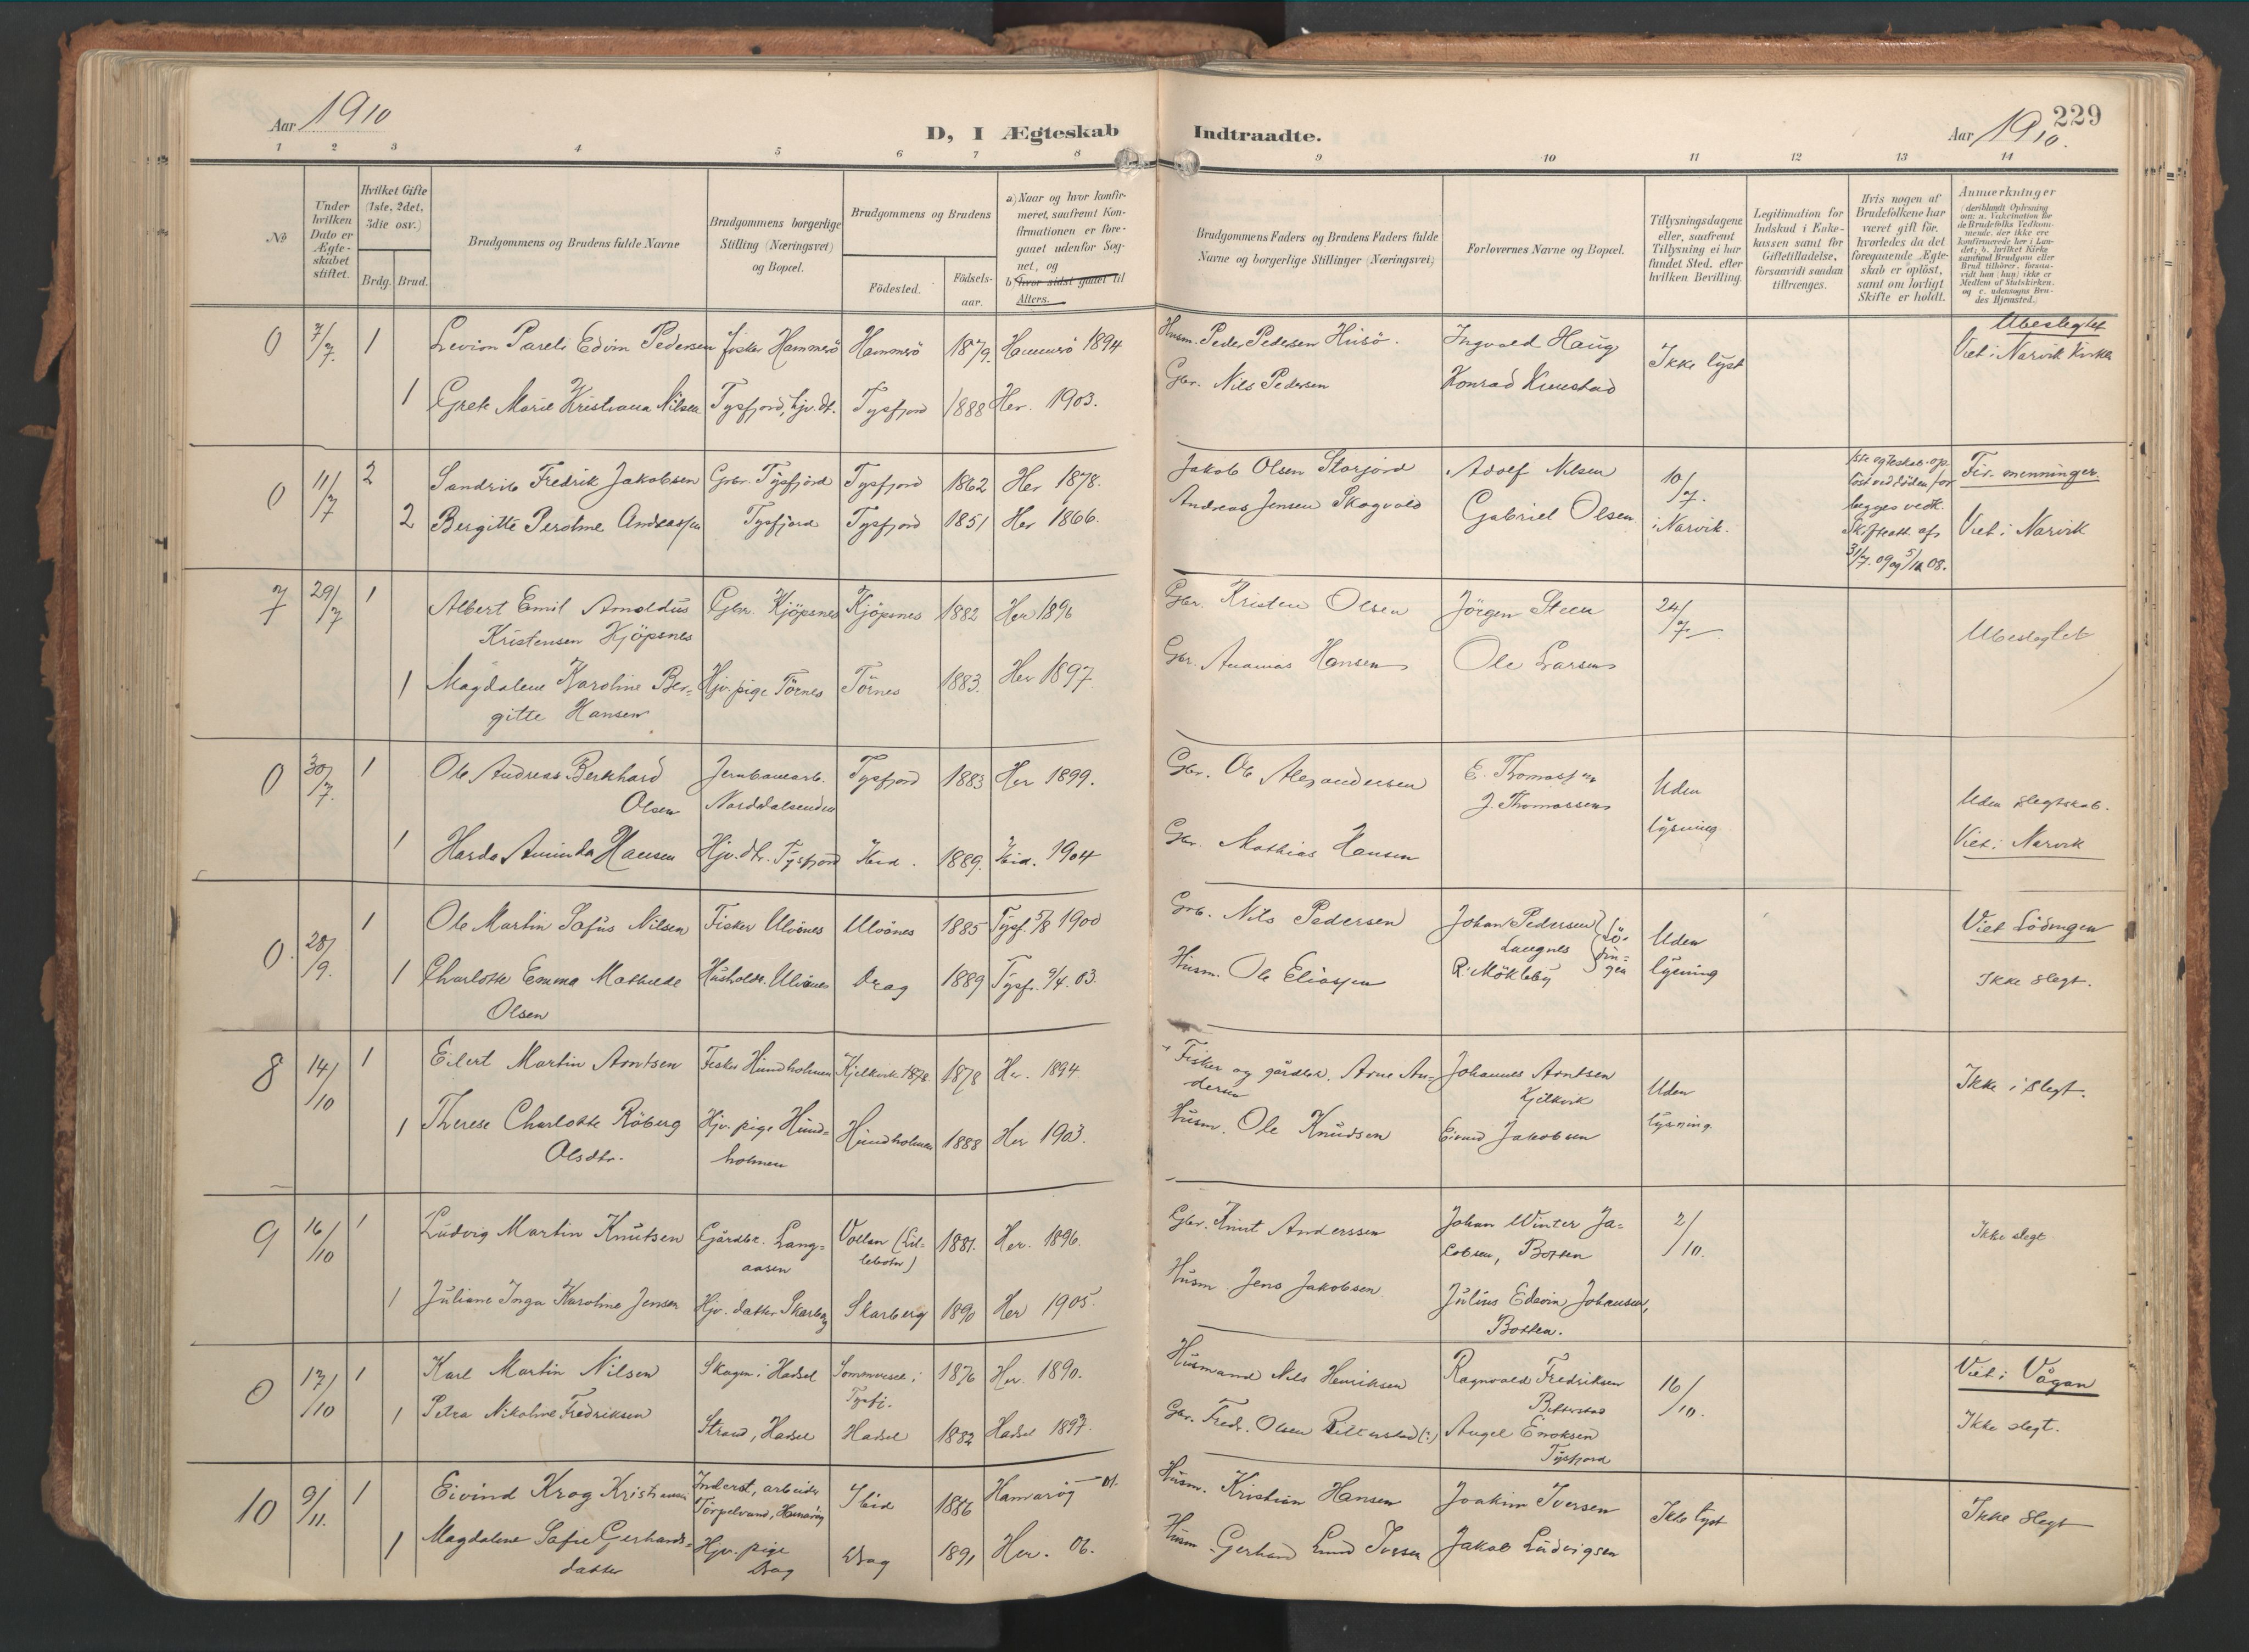 Aar 1910
D, I Ægteskab Indtraadte.
Aar 1910.
229
1 2 3 4 5 6 7 8 9 10 11 12 13 14
No
Under hvilken Dato er Ægteskabet stiftet.
Hvilket Gifte (1ste, 2det, 3die osv.)
Brdg. Brud.
Brudgommens og Brudens fulde Navne
Brudgommens borgerlige Stilling (Næringsvei) og Bopæl.
Brudgommens og Brudens
Födested.
Födsels-aar.
a) Naar og hvor konfir-
meret, saafremt Kon-
firmationen er fore-
gaaet udenfor Sog-
net, og
b) hvor sidst gaaet til
Alters.
Brudgommens Faders og Brudens Faders fulde
Navne og borgerlige Stillinger (Næringsvei)
Forlovernes Navne og Bopæl.
Tillysningsdagene
eller, saafremt
Tillysning ei har
fundet Sted, efter
hvilken Bevilling.
Legitimation for
Indskud i Enke-
kassen samt for
Giftetilladelse,
forsaavidt saadan
tiltrænges.
Hvis nogen af
Brudefolkene har
været gift för,
hvorledes da det
foregaaende Ægte-
skab er oplöst,
samt om lovligt
Skifte er holdt.
Anmerkninger
(deriblandt Oplysning
om: a. Vakcination for
de Brudefolks Vedkom-
mende, der ikke ere
konfirmerede her i Lan-
det; b. hvilket Kirke
samfund Brudgom eller
Brud tilhörer, forsaa-
vidt han (hun) ikke er
Medlem af Statskirken,
og c. udensogns Bru-
des Hjemsted.)
0 7/7. 1 Levion Pareli Edvin Pedersen fisker Hammerö Hammerö 1879. Hammerö 1894 Husm. Peder Pedersen Husö. Ingvald Haug Ikke lyst Ubeslegtet
Viet i Narvik Kirke
1 Grete Marie Kristiana Nilsen Tysfjord, hjv. dt. Tysfjord 1888 Her. 1903. Gbr. Nils Pedersen Konrad
0 11/7 2 Sandrik Fredrik Jakobsen Grbr. Tysfjord Tysfjord 1862 Her 1878. Jakob Olsen Storjord Adolf Nilsen 10/7. i Narvik. Fir-menninger.
2 Bergitte Peroline Andreassen Tysfjord Tysfjord 1851 Her 1866. Andreas Jensen Skogvold Gabriel Olsen Viet i Narvik
1ste egteskab op-
löst ved döden for
begges vedk.
Skifteatt. af
31/7. 09 og 5/12 08.
7 29/7 1 Albert Emil Arnoldus
Kristensen Kjöpsnes Gbr. Kjöpsnes Kjöpsnes 1882 Her 1896 Gbr. Kristen Olsen Jörgen Steen 24/7. Ubeslegtet
1 Magdalene Karoline Ber-
gitte Hansen Hjv. pige Törnes Törnes 1883. Her 1897. Gbr. Ananias Hansen Ole Larsen
0 30/7. 1 Ole Andreas Berkhard
Olsen Jernbanearb. Norddalsenden Tysfjord 1883 Her 1899. Gbr. Ole Alexandersen E. Thomassen
J. Thomassen Uden
lysning Uden slegtskab.
Viet i Narvik
1 Harda Aminda Hansen Hjv. dtr. Tysfjord Ibid. 1889. Ibid. 1904 Gbr. Mathias Hansen
0. 28/9. 1 Ole Martin Sofus Nilsen Fisker Ulvönes Ulvönes 1885 Tysf. 5/8 1900 Grb. Nils Pedersen Johan Pedersen
Langnes
R. Mökleby Lö-
din-
gen Uden
lysning Viet Lödingen
Ikke slegt.
1 Charlotte Emma Mathilde
Olsen Husholdr. Ulvönes Drag 1889 Tysf. 9/4. 03. Husm. Ole Eliassen
8 14/10 1 Eilert Martin Arntsen Fisker Hundholmen Kjelkvik 1878 1878 Her. 1894 Fisker og gårdbr. Arne An-
dersen Johannes Arntsen
Kjelkvik Uden
lysning. Ikke i slegt.
1 Therese Charlotte Röberg
Olsdtr. Hjv. pige Hund-
holmen Hundholmen 1888 Her 1903. Husm. Ole Knudsen Eivind Jakobsen
9 16/10 1 Ludvig Martin Knutsen Gårdbr. Lang-
aasen Vollan (Lil-
lebotn) 1881. Her. 1896. Gbr. Knut Anderssen Johan Winter Ja-
cobsen, Botten 2/10. Ikke slegt
1 Juliane Inga Karoline Jensen Hjv. datter Skarberg Skarberg 1890 Her 1905. Husm Jens Jakobsen Julius Edevin Johansen,
Botten.
0 17/10 1 Karl Martin Nilsen Skagen i Hadsel Sommersel i
Tysfj. 1876 Her. 1890. Husmand Nils Henriksen Ragnvald Fredriksen
Bitterstad 16/10. Viet i Vågan
1 Petra Nikoline Fredriksen Strand, Hadsel Hadsel 1882 Hadsel 1897. Gbr. Fredr. Olsen Bitterstad (?) Angel Enoksen
Tysfjord Ikke slegt.
10 9/11. 1 Eivind Krog Kristiansen Inderst, arbeider
Törpelvand, Hamaröy Ibid 1886 Hamaröy 01. Husm. Kristian Hansen Joakim Iversen Ikke lyst Ikke slegt
1 Magdalene Sofie Gerhards-
datter Hjv. pige
Drag Drag 1891 Her. 06. Husm. Gerhard Lund Iversen Jakob Ludvigsen